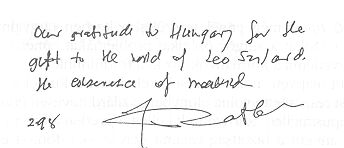 Our gratitude to Hungary for the
gift to the world of Leo Szilard.
the conscience of mankind
298